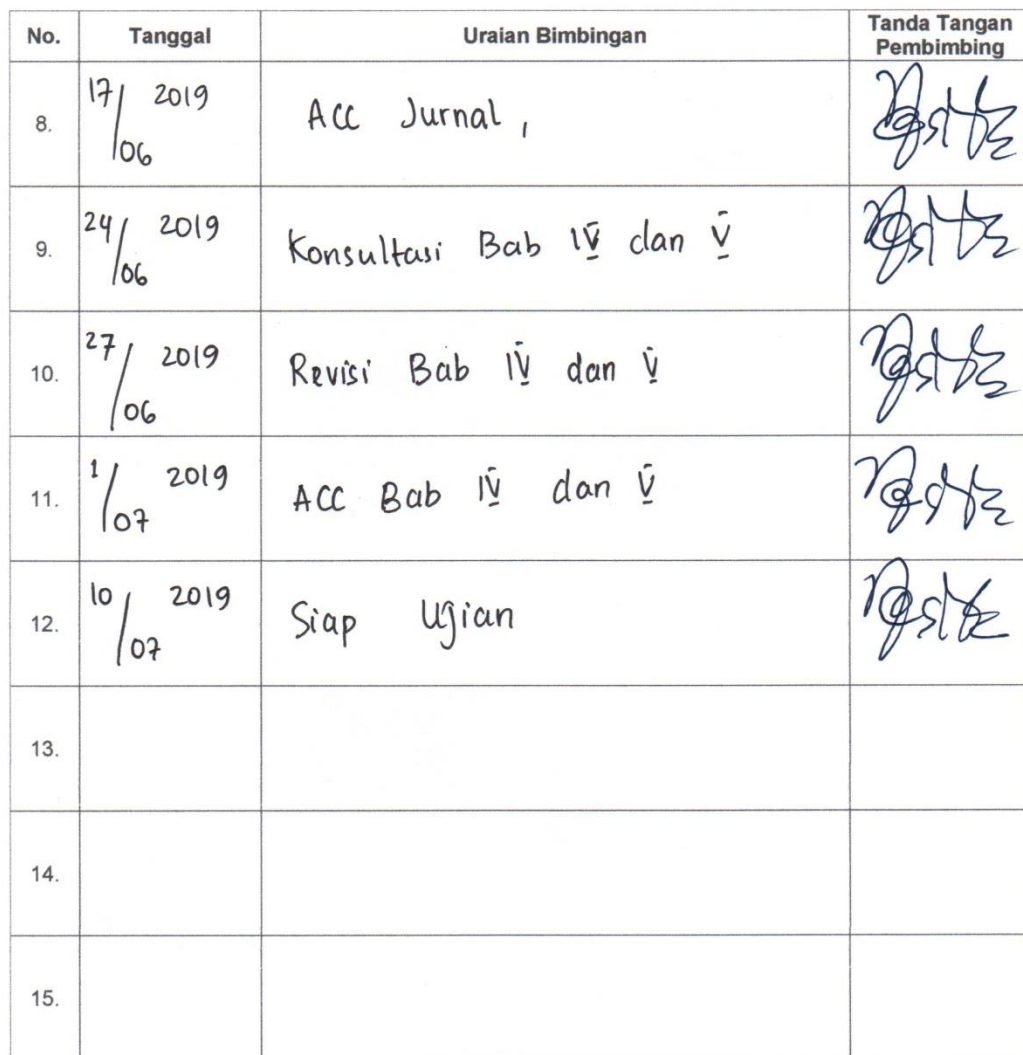 No. Tanggal Uraian Bimbingan Tanda Tangan Pembimbing
8. 17/06 2019 Acc Jurnal,
9. 24/06 2019 Konsultasi Bab IV dan V
10. 27/06 2019 Revisi Bab IV dan V
11. 1/07 2019 ACC Bab IV dan V
12. 10/07 2019 Siap Ujian
13.
14.
15.